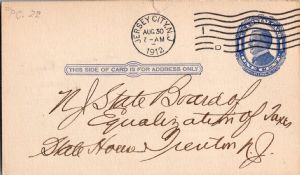 PC. 22
JERSEY CITY, N.J.
AUG 30
7-AM
1912
1
D
THIS SIDE OF CARD IS FOR ADDRESS ONLY
N.J. State Board of
Equalization of Taxes
State House Trenton N.J.